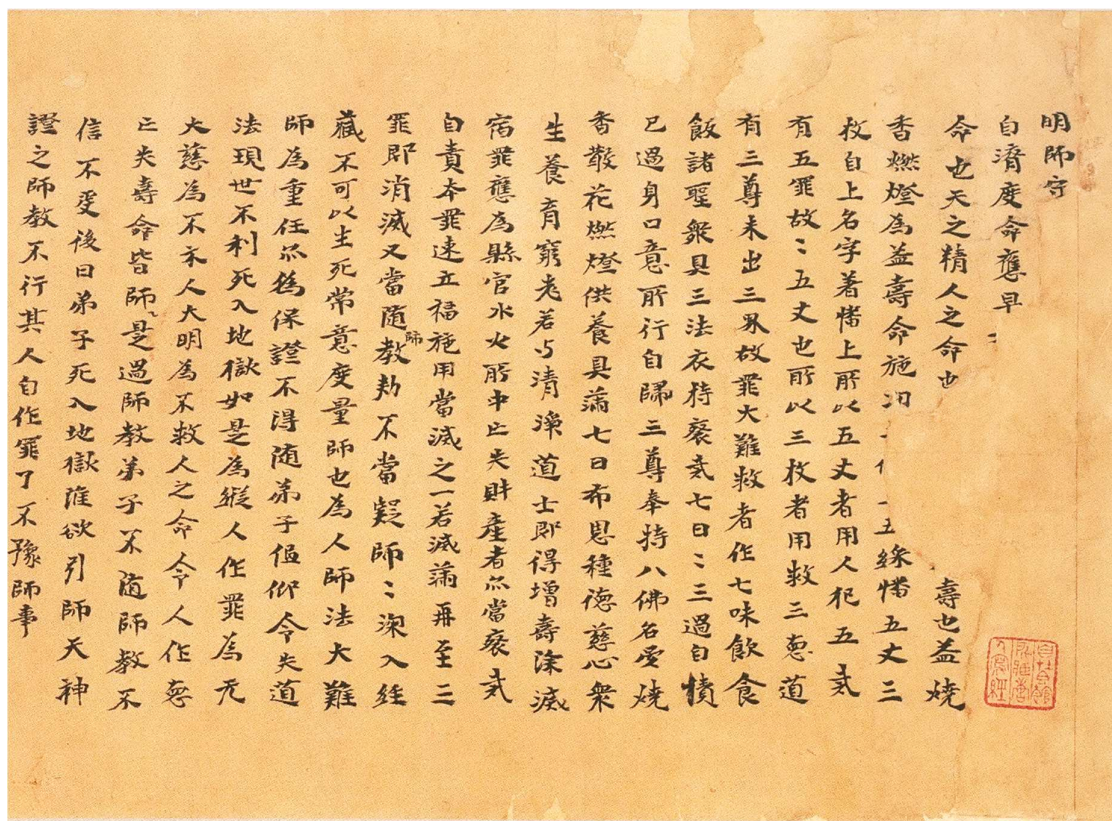 明師守
自濟度命應早
命也天之精人之命也 壽也益燒
香燃燈為益壽命施 五綵幡五丈三
枚自上名字著幡上所以五丈者用人犯五戒
有五罪故〻五丈也所以三枚者用救三惡道
有三尊未出三界故罪大難救者作七味飲食
飯諸聖衆具三法衣持齋戒七日〻三過自積
已過身口意所行自歸三尊奉持八佛名受燒
香散花燃燈供養具滿七日布恩種德慈心衆
生養育窮老若与清淨道士即得增壽除滅
宿罪應為縣官水火所中亡失財產者亦當齋戒
自責本罪速立福施用當滅之一若滅滿再至三
罪即消滅又當随師教勑不當疑師〻深入經
藏不可以生死常意度量師也為人師法大難
師為重任亦為保證不得随弟子俱仰令失道
法現世不利死入地獄如是為縱人作罪為无
大慈為不 人大明為不救人之命令人作惡
亡失壽命皆師〻是過師教弟子不随師教不
信不受後日弟子死入地獄雖欲引師天神
證之師教不行其人自作罪了不豫師事